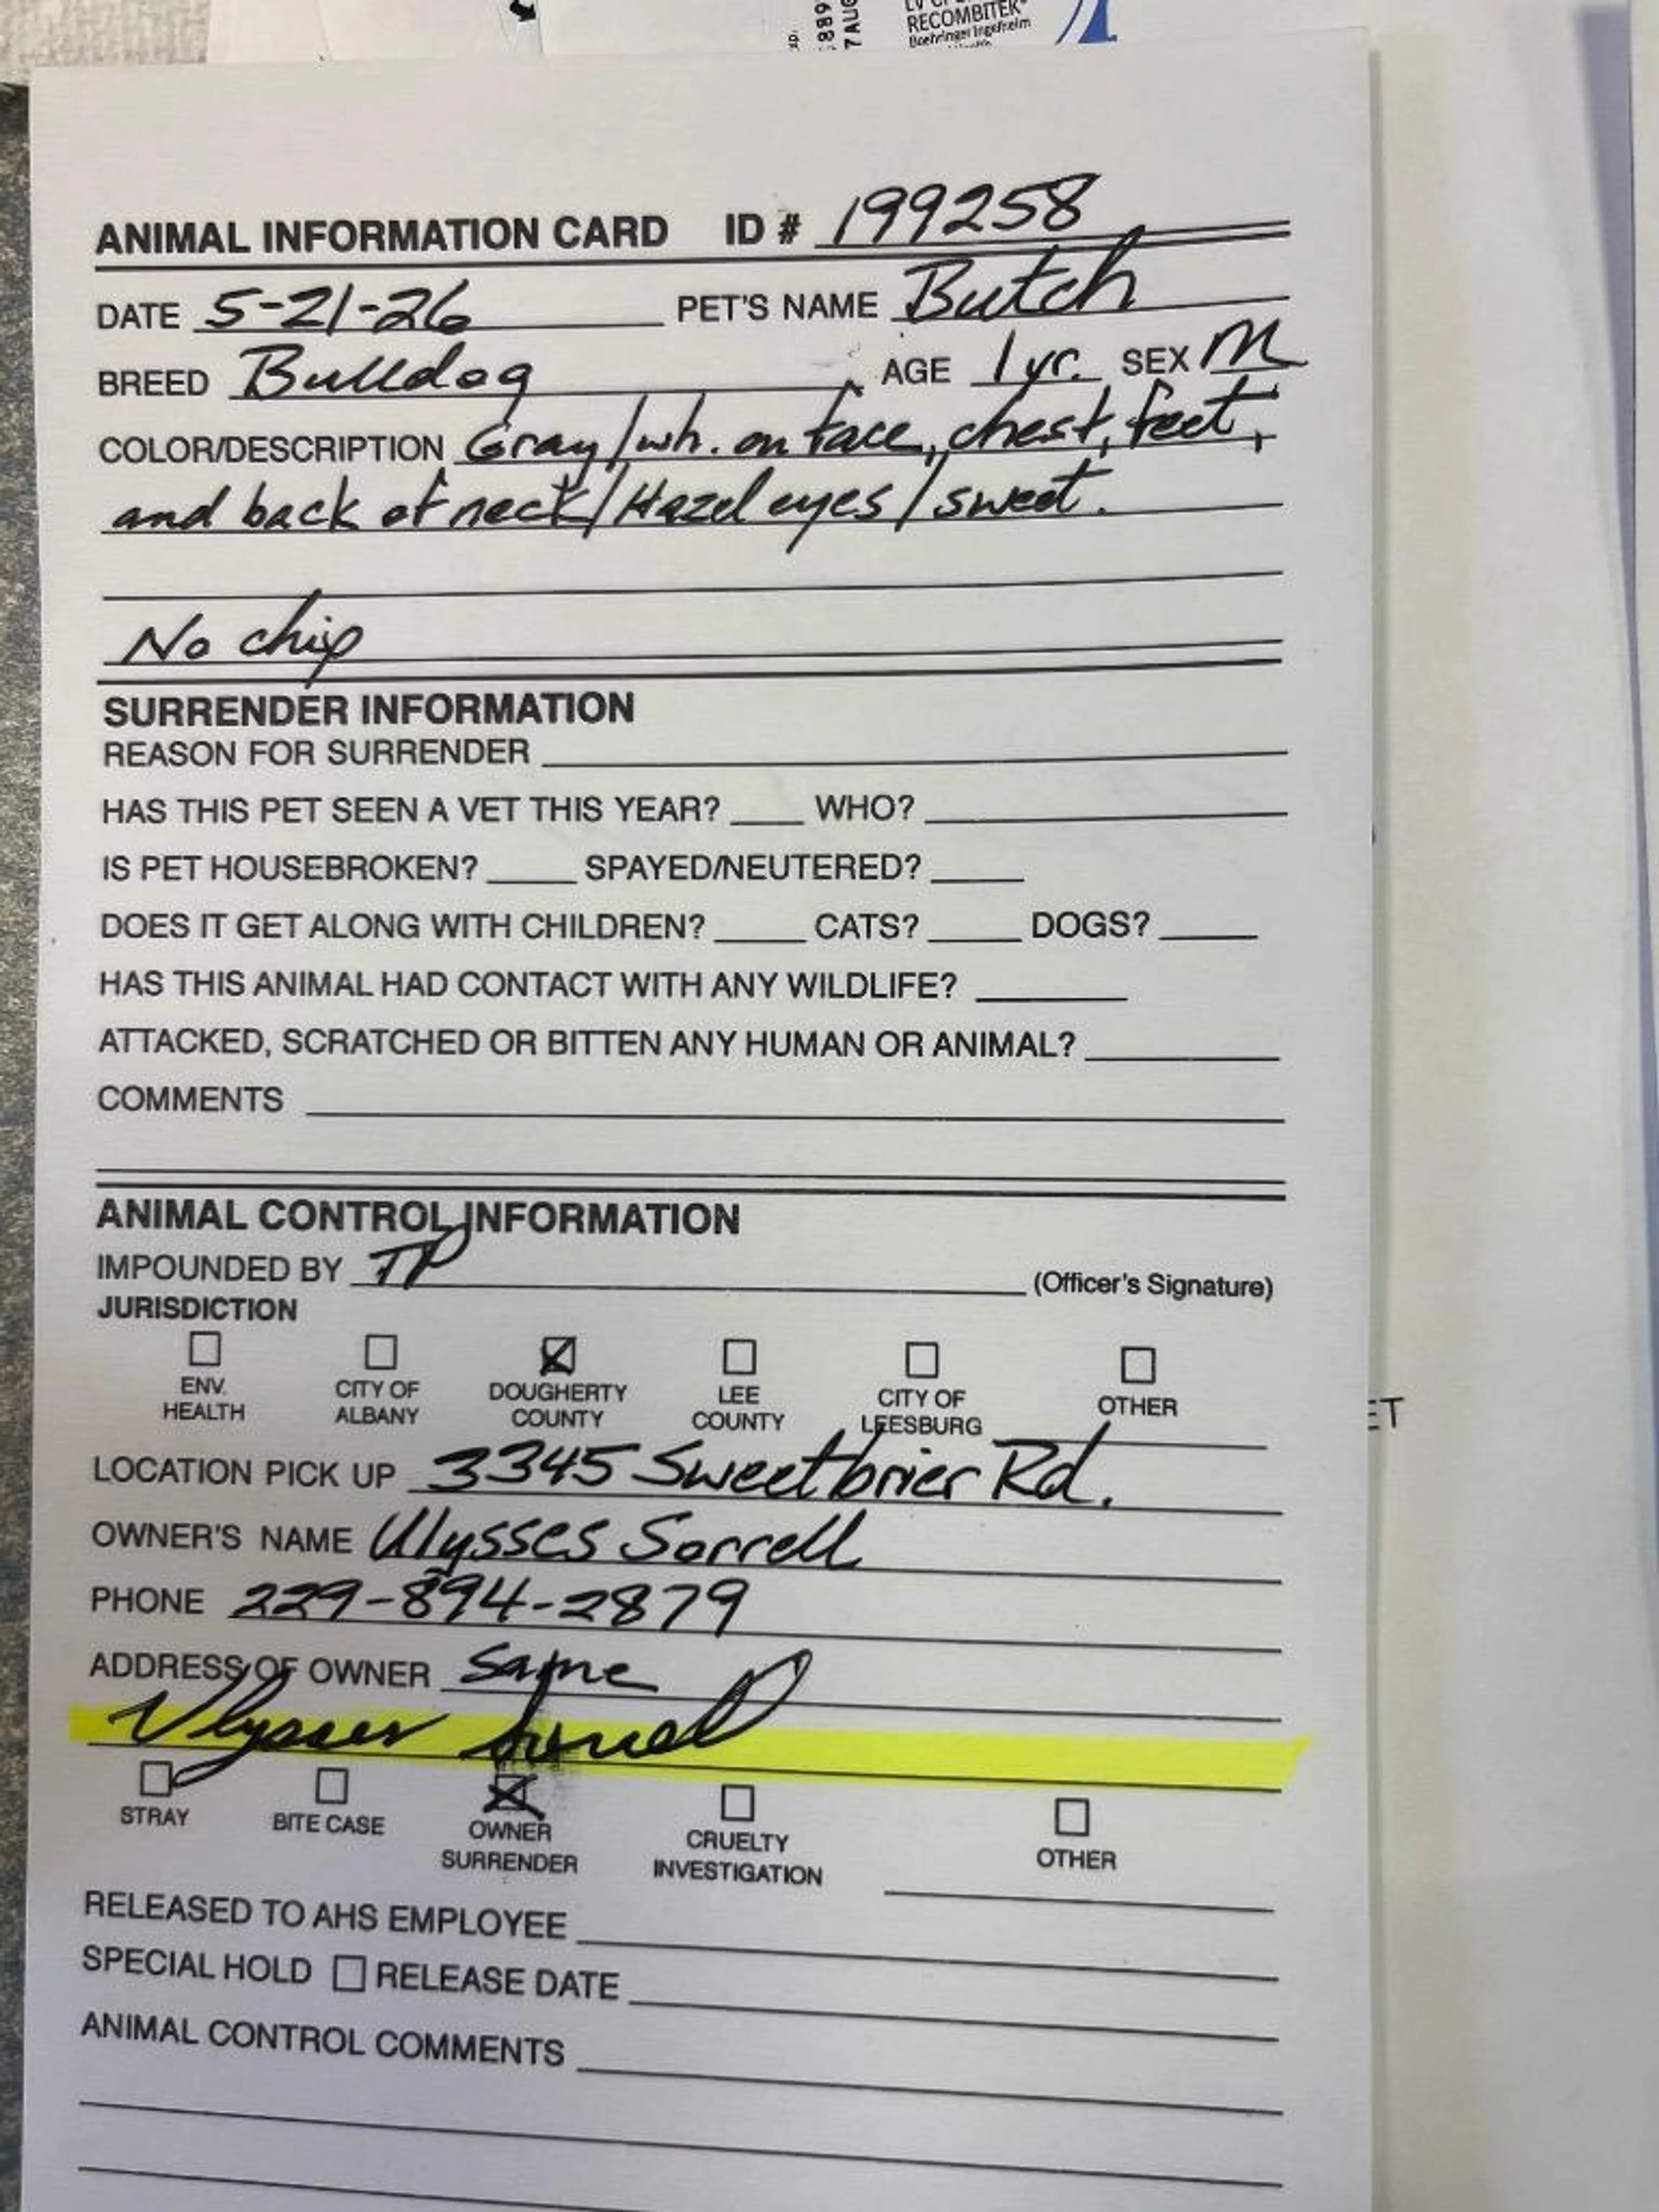 RECOMBITEK®
Boehringer Ingelheim
7AUG
ANIMAL INFORMATION CARD ID # 199258
DATE 5-21-26 PET'S NAME Butch
BREED Bulldog AGE 1 yr. SEX M
COLOR/DESCRIPTION Gray/wh. on face, chest, feet,
and back of neck/Hazel eyes/sweet.
No chip
SURRENDER INFORMATION
REASON FOR SURRENDER
HAS THIS PET SEEN A VET THIS YEAR? WHO?
IS PET HOUSEBROKEN? SPAYED/NEUTERED?
DOES IT GET ALONG WITH CHILDREN? CATS? DOGS?
HAS THIS ANIMAL HAD CONTACT WITH ANY WILDLIFE?
ATTACKED, SCRATCHED OR BITTEN ANY HUMAN OR ANIMAL?
COMMENTS
ANIMAL CONTROL INFORMATION
IMPOUNDED BY TP (Officer's Signature)
JURISDICTION
ENV. HEALTH CITY OF ALBANY DOUGHERTY COUNTY LEE COUNTY CITY OF LEESBURG OTHER
ET
LOCATION PICK UP 3345 Sweetbrier Rd.
OWNER'S NAME Ulysses Sorrell
PHONE 229-894-2879
ADDRESS OF OWNER Same
Ulysses Sorrell
STRAY BITE CASE OWNER SURRENDER CRUELTY INVESTIGATION OTHER
RELEASED TO AHS EMPLOYEE
SPECIAL HOLD RELEASE DATE
ANIMAL CONTROL COMMENTS